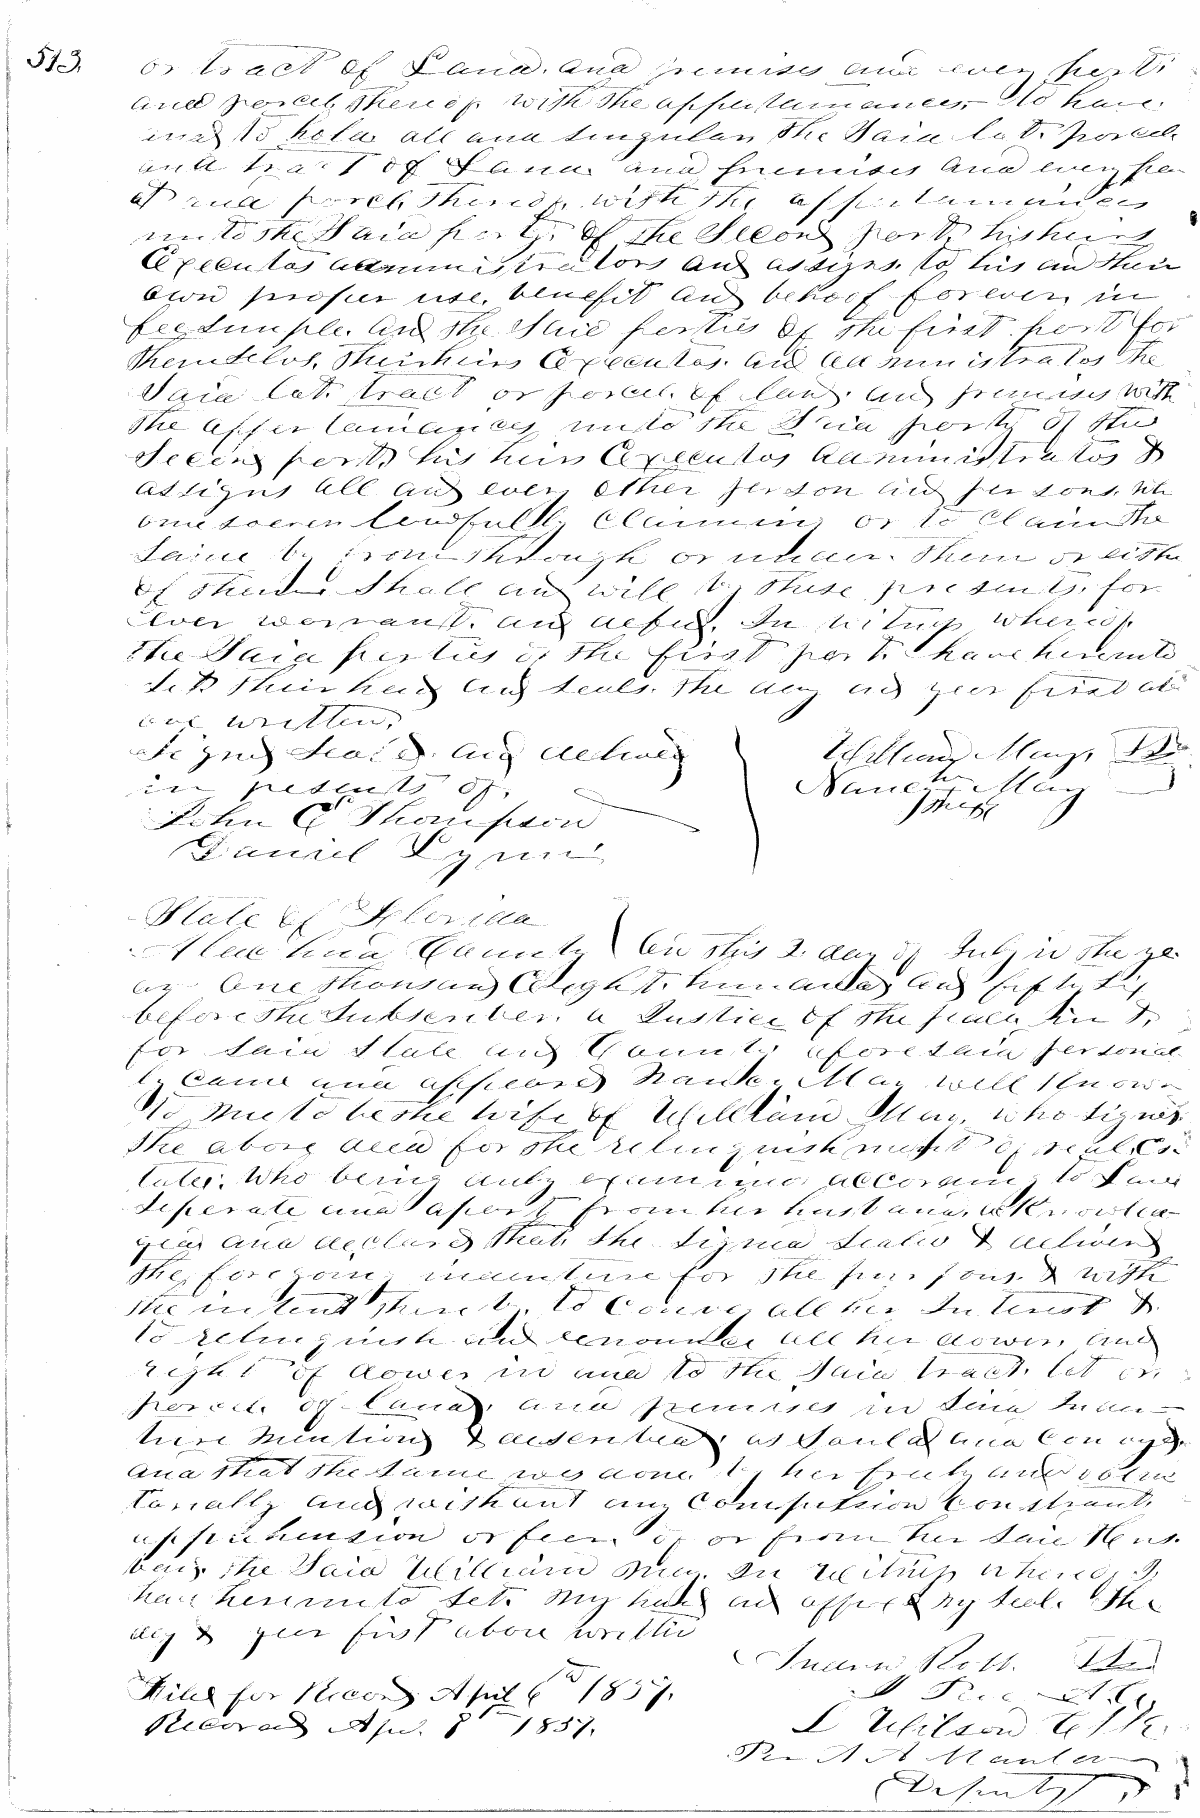 513.
or tract of Land. and premises and every part
and parcel thereof. with the appertainances,- To have
and to hold all and singular the Said lot. parcel
and tract of Land and premises and every par
t and parcel thereof, with the appertainances
unto the Said party of the Second part, his heirs
Executos administrators and assigns. to his and their
own proper use. benefit and behoof forever, in
fee simple. And the Said parties of the first part for
themselvs. their heirs Executos. and administratos the
Said lot. tract or parcel. of land. and premises with
the appertainances unto the Said party of the
Second part, his heirs Executos Administratos &
assigns all and every other person and persons. wh
omesoever lawfully claiming or to claim the
same by from through or under. them or eithe
of them Shall and will by these presents. for
ever warrant. and defend. In witness whereof.
the Said parties of the first part. have hereunto
set their hand and seals. the day and year first ab
ove written,
Signed Seald. and delivered
in presents of.
William May,
Nancy May
John C Thompson
Daniel Lynn
State of Florida
Alachua County } On this 2. day of July in the ye
ar One thousand Eight. hundred and fifty Six
before the Subscriber. a Justice of the peace In &
for Said State and County aforesaid personal
ly came and appeared Nancy May well known
to me to be the wife of William May, who signed
the above deed for the relinquishment of real Es
tate. Who being duly examined according to Law
Seperate and apart from her husband, acknowled
ged and declared that, she signed sealed & deliverd
the foregoing indenture for the purpous. & with
the intent thereby. to convey all her Interest &
to relinquish and renounce all her dower, and
right of dower in and to the Said tract. lot or.
parcel. of land, and premises in Said Inden-
ture Mentiond & discribed. as Sould and Conveyed.
and that the Same was done by her freely and volun
tarially and without any Compulsion Constraint.
apprehension or fear. of or from her Said Hus.
band. the Said William May. In Witness whereof I,
have hereunto Set. My hand and affixed my seal. the
day & year first above written
Filed for Record April 6th 1857.
Recorded Apr. 8th 1857.
L Wilson Clk.
Deputy